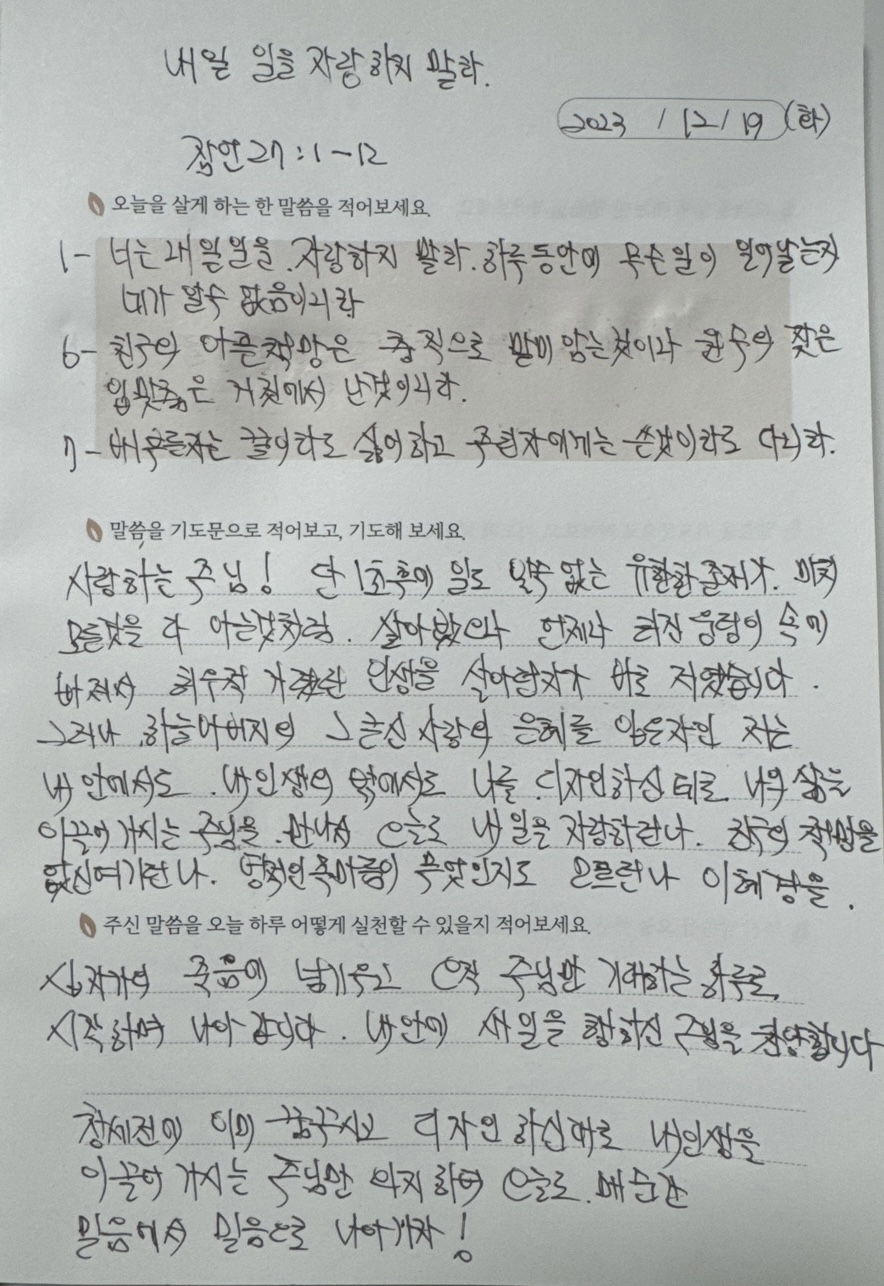 내일 일을 자랑하지 말라.
2023 / 12 / 19 (화)
잠언 27 : 1 - 12
오늘을 살게 하는 한 말씀을 적어보세요.
1 - 너는 내일일을 자랑하지 말라. 하루동안에 무슨일이 일어날는지
네가 알수 없음이니라
6 - 친구의 아픈책망은 충직으로 말미 암는것이나 원수의 잦은
입맞춤은 거짓에서 난것이니라.
7 - 배부른자는 꿀이라도 싫어하고 주린자에게는 쓴것이라도 다니라.
말씀을 기도문으로 적어보고, 기도해 보세요.
사랑하는 주님! 단 1초후의 일도 알수 없는 유한한 존재가. 마치
모든것을 다 아는것처럼. 살아왔으나 언제나 터진 웅덩이 속에
빠져서 허우적 거렸던 인생을 살아던자가 바로 저였습니다.
그러나 하늘아버지의 그 크신 사랑의 은혜를 입은자인 저는
내 안에서도 내인생의 밖에서도 나를 디자인하신 대로 나의 삶을
이끌어 가시는 주님을 만나서 오늘도 내일을 자랑하런나. 친구의 책망을
없신여기런나. 영적인 주마름이 무엇인지도 모르런나 이혜경을.
주신 말씀을 오늘 하루 어떻게 실천할 수 있을지 적어보세요.
십자가의 죽음에 넘기우고 오직 주님만 기대하는 하루로
시작하며 나아 갑니다. 내안에 새일을 행하신 주님을 찬양합니다
창세전에 이미 꿈꾸시고 디자인 하신대로 내인생을
이끌어 가시는 주님만 의지하며 오늘도 매순간
믿음에서 믿음으로 나아가자!